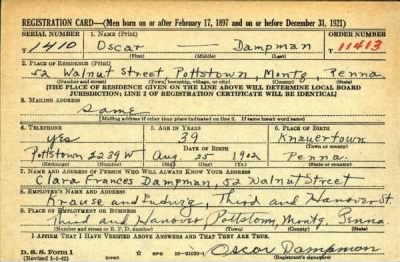 REGISTRATION CARD—(Men born on or after February 17, 1897 and on or before December 31, 1921)
SERIAL NUMBER 1. NAME (Print) ORDER NUMBER
1410 Oscar — Dampman 11413
(First) (Middle) (Last)
2. PLACE OF RESIDENCE (Print)
52 Walnut Street, Pottstown, Montg, Penna
(Number and street) (Town, township, village, or city) (County) (State)
[THE PLACE OF RESIDENCE GIVEN ON THE LINE ABOVE WILL DETERMINE LOCAL BOARD
JURISDICTION; LINE 2 OF REGISTRATION CERTIFICATE WILL BE IDENTICAL]
3. MAILING ADDRESS
Same
[Mailing address if other than place indicated on line 2. If same insert word same]
4. TELEPHONE 5. AGE IN YEARS 6. PLACE OF BIRTH
yes 39 Knauertown
DATE OF BIRTH (Town or county)
Pottstown 2239W Aug 25 1902 Penna.
(Exchange) (Number) (Mo.) (Day) (Yr.) (State or country)
7. NAME AND ADDRESS OF PERSON WHO WILL ALWAYS KNOW YOUR ADDRESS
Clara Frances Dampman, 52 Walnut Street
8. EMPLOYER'S NAME AND ADDRESS
Krause and Ludwig, Third and Hanover St.
9. PLACE OF EMPLOYMENT OR BUSINESS
Third and Hanover Pottstown, Montg, Penna
(Number and street or R. F. D. number) (Town) (County) (State)
I AFFIRM THAT I HAVE VERIFIED ABOVE ANSWERS AND THAT THEY ARE TRUE.
D. S. S. Form 1 GPO 16—21630-1 Oscar Dampman
(Revised 1-1-42) (Registrant's signature)